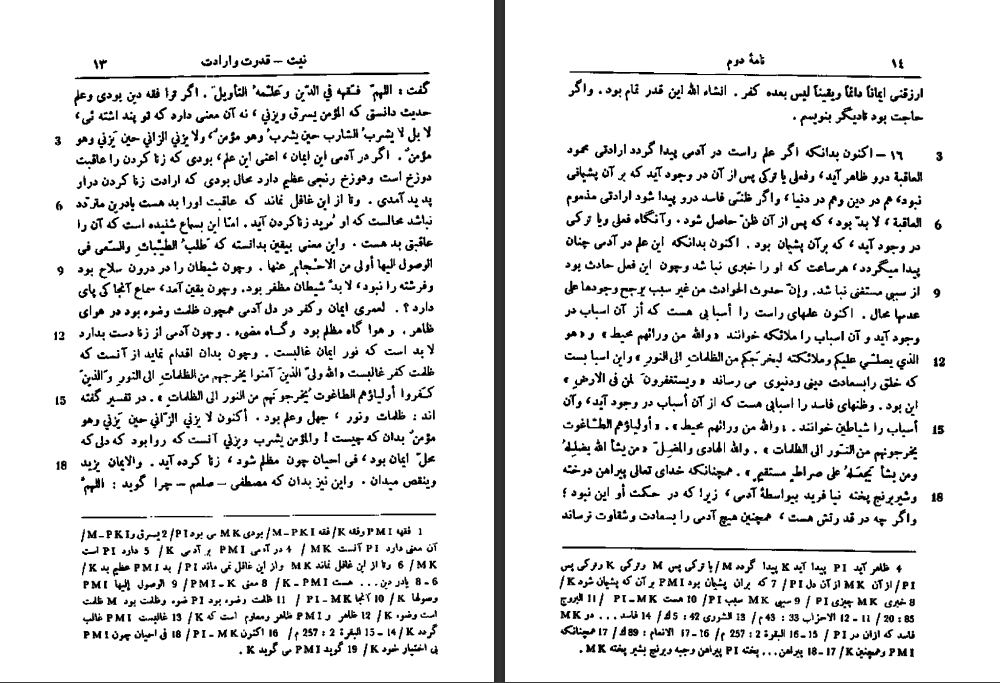 نیت – قدرت وارادت ۱۳
گفت : اللهمّ فقّهه في الدّین وعلّمهُ التأویلَ . اگر ترا فقه دین بودی وعلم
حدیث دانستی که المؤمن یسرق ویزني ، نه آن معنی دارد که تو پند اشته ئی ،
لا بل لا یشربُ الشارب حین یشربُ وهو مؤمنٌ ، ولا یزني الزاني حین یَزني وهو 3
مؤمنٌ . اگر در آدمی این ایمان ، اعنی این علم ، بودی که زنا کردن را عاقبت
دوزخ است ودوزخ رنجی عظیم دارد محال بودی که ارادت زنا کردن درار
پدید آمدی . وتا از این غافل نماند که عاقبت اورا بد هست یادرین متردّد 6
نباشد محالست که او مُرید زنا کردن آید . امّا این بسماع شنیده است که آن را
عاقبتی بد هست . واین معنی بیقین بدانسته که طلبُ الطیّباتِ والسّعی فی
الوصول الیها أولی من الاحْجامِ عنها . وچون شیطان را در درون سلاح بود 9
وفرشته را نبود ، لا بدّ شیطان مظفر بود . وچون یقین آمد ، سماع آنجا کی پای
دارد ؟ . لعمری ایمان وکفر در دل آدمی همچون ظلمت وضوء بود در هوای
ظاهر . و هوا گاه مظلم بود وگاه مضیء . وچون آدمی از زنا دست بدارد 12
لا بد است که نور ایمان غالبست . وچون بدان اقدام نماید از آنست که
ظلمت کفر غالبست « الله ولیّ الّذینَ آمنوا یخرجهم من الظلمات الی النور وَالّذینَ
کفروا أولیاؤهم الطاغوت یُخرجونهم من النور الی الظلمات » . در تفسیر گفته 15
اند : ظلمات ونور ، جهل وعلم بود . أکنون لا یزني الزّاني حین یَزني وهو
مؤمنٌ بدان که چیست ! والمؤمن یشرب ویزني آنست که روا بود که دلی که
محلّ ایمان بود ، فی احیان چون مظلم شود ، زنا کرده آید . والایمان یزید 18
وینقص میدان . واین نیز بدان که مصطفی – صلعم – چرا گوید : اللهمّ
1 فقیه PMI وفقه K/ فقه M–PKI/ بودی MK می بود PI/ 2 یسرق و M–PKI/
آن معنی دارد PI آنست MK / 4 در آدمی PMI بر آدمی K / 5 دارد PI است
MK/ 6 وتا از این غافل نماند MK واز این غافل نمی ماند PI/ بد PMI عظیم بد K/
6 – 8 یادر دین... هست K–PMI/ 8 معنی K–PMI/ 9 الوصول الیها PMI
وصولها K/ 10 آنجا PI–MK / 11 ظلمت وضوء بود PI ضوء وظلمت بود M ظلمت
است وضوء K/ 12 ظاهر و PMI ظاهر ومعلوم است که K/ 13 غالبست PMI غالب
گردد K/ 14 – 15 البقرة 2 : 257 م/ 16 اکنون PI–MK/ 18 فی احیان چون PMI
بی اختیار خود K/ 19 گوید PMI می گوید K .
نامهٔ دوم ۱٤
ارزقنی ایماناً دائماً ویقیناً لیس بعده کفر . انشاء الله این قدر تمام بود . واگر
حاجت بود تادیگر بنویسم .
۱۶ – اکنون بدانکه اگر علم راست در آدمی پیدا گردد ارادتی محمود 3
العاقبة درو ظاهر آید ، وفعلی یا ترکی پس از آن در وجود آید که بر آن پشیمانی
نبود، هم در دین وهم در دنیا ، واگر ظنّی فاسد درو پیدا شود ارادتی مذموم
العاقبة ، لا بدّ بود ، که پس از آن ظنّ حاصل شود . وآنگاه فعلی ویا ترکی 6
در وجود آید ، که برآن پشیمان بود . اکنون بدانکه این علم در آدمی چنان
پیدا میگردد ، هرساعت که او را خبری نبا شد وچون این فعل حادث بود
از سببی مستغنی نبا شد . وإنّ حدوث الحوادث من غیر سبب یرجح وجودها علی 9
عدمها محال . اکنون علمهای راست را أسبابی هست که از آن اسباب در
وجود آید و آن اسباب را ملائکه خوانند « والله من ورائهم محیط » و « هو
الذي یصلّي علیکم وملائکته لیخرجَکم من الظلمات الی النورِ » واین اسبا بست 12
که خلق رابسعادت دینی ودنیوی می رساند « ویستغفرون لمن فی الارضِ »
این بود . وظنهای فاسد را اسبابی هست که از آن أسباب در وجود آید ، وآن
أسباب را شیاطین خوانند . « والله من ورائهم محیط » . « أولیاؤهم الطّاغوت 15
یخرجونهم من النّور الی الظلمات » . والله الهادی والمضلّ « من یشأ الله یضللهُ
ومن یشأ یجعلهُ علی صراطٍ مستقیم » . همچنانکه خدای تعالی پیراهن دوخته
وشیربرنج پخته نیا فرید بیواسطهٔ آدمی ، زیرا که در حکمت او این نبود ؛ 18
واگر چه در قدرتش هست ، همچنین هیچ آدمی را بسعادت وشقاوت نرساند
4 ظاهر آید PI پیدا آید K پیدا گردد M/ یا ترکی پس PM وترکی K وترکی پس
PI/ ازآن MK از آن دل PI/ 7 که بران پشیمان بود PMI بر آن که پشیمان شود K/
8 خبری MK چیزی PI/ 9 سببی MK سبب PI/ 10 هست PI–MK / 11 البروج
85 : 20/ 11 – 12 الاحزاب 33 : 43 م/ 13 الشوری 42 : 5 ك/ 14 فاسد ... در MK
فاسد که ازان در PI / 15–16 البقرة 2 : 257 م/ 16–17 الانعام : 89 ك/ 17 همچنانکه
PMI وهمچنین K/ 17–18 پیراهن... پخته PI پیراهن وجبه وبرنج بشیر پخته MK .